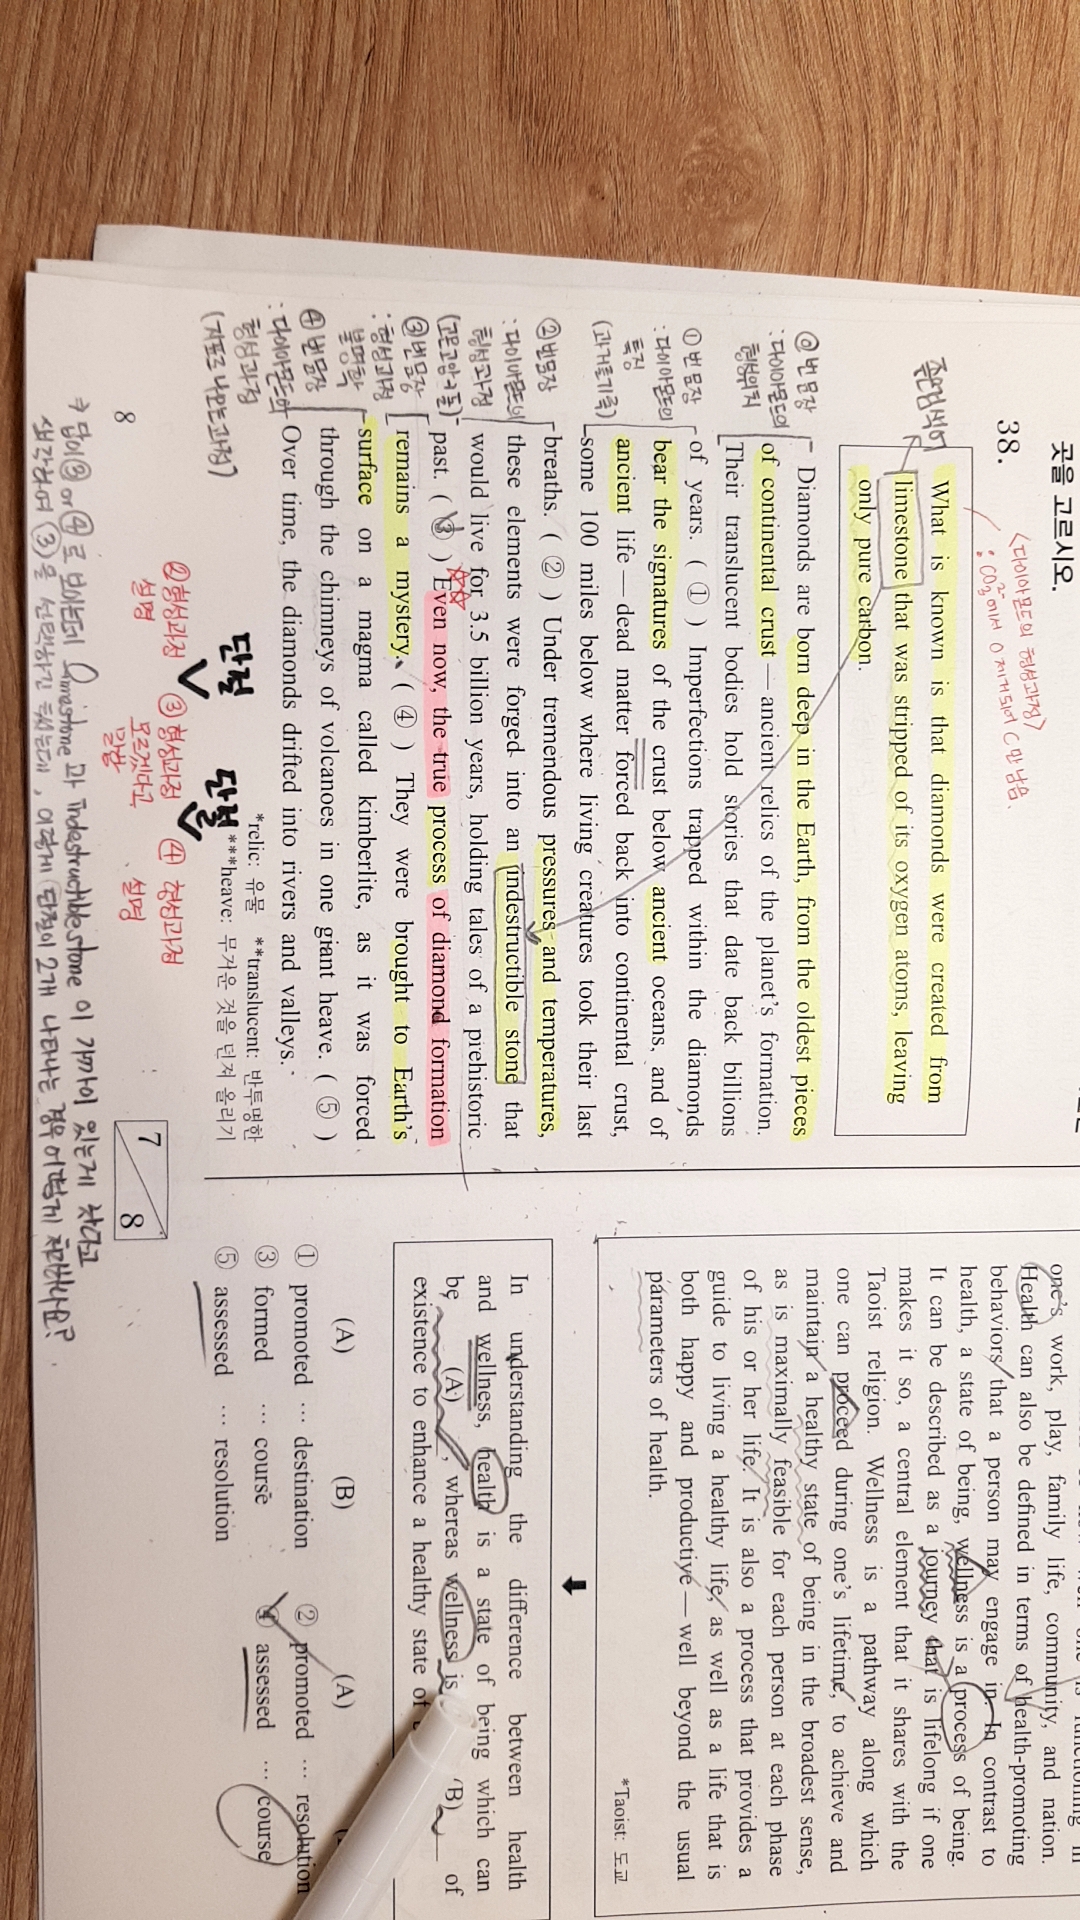 곳을 고르시오.
38.
<다이아몬드의 형성과정>
: CO₂에서 O 제거되어 C만 남음.
주어진 문장
What is known is that diamonds were created from
limestone that was stripped of its oxygen atoms, leaving
only pure carbon.
⓪번 문장
: 다이아몬드의
형성위치
①번 문장
: 다이아몬드의
특징
(과거를 기록)
②번 문장
: 다이아몬드의
형성과정
(고온고압→돌)
③번 문장
: 형성과정
불명확
④번 문장
: 다이아몬드의
형성과정
(지표로 나오는 과정)
Diamonds are born deep in the Earth, from the oldest pieces
of continental crust — ancient relics of the planet's formation.
Their translucent bodies hold stories that date back billions
of years. ( ① ) Imperfections trapped within the diamonds
bear the signatures of the crust below ancient oceans, and of
ancient life — dead matter forced back into continental crust,
some 100 miles below where living creatures took their last
breaths. ( ② ) Under tremendous pressures and temperatures,
these elements were forged into an indestructible stone that
would live for 3.5 billion years, holding tales of a prehistoric
past. ( ③ ) Even now, the true process of diamond formation
remains a mystery. ( ④ ) They were brought to Earth's
surface on a magma called kimberlite, as it was forced
through the chimneys of volcanoes in one giant heave. ( ⑤ )
Over time, the diamonds drifted into rivers and valleys.
*relic: 유물 **translucent: 반투명한
***heave: 무거운 것을 던져 올리기
단절 단절
②형성과정 ③형성과정 ④형성과정
설명 모르겠다고 설명
말함
8
7 / 8
⇒ 답이 ③ or ④로 보이는데 limestone과 indestructible stone이 가까이 있는게 맞다고
생각하여 ③을 선택하긴 했는데, 이렇게 단절이 2개 나타나는 경우 어떻게 처리하나요?
one's work, play, family life, community, and nation.
Health can also be defined in terms of health-promoting
behaviors that a person may engage in. In contrast to
health, a state of being, wellness is a process of being.
It can be described as a journey that is lifelong if one
makes it so, a central element that it shares with the
Taoist religion. Wellness is a pathway along which
one can proceed during one's lifetime, to achieve and
maintain a healthy state of being in the broadest sense,
as is maximally feasible for each person at each phase
of his or her life. It is also a process that provides a
guide to living a healthy life, as well as a life that is
both happy and productive — well beyond the usual
parameters of health.
*Taoist: 도교
In understanding the difference between health
and wellness, health is a state of being which can
be (A) , whereas wellness is (B) of
existence to enhance a healthy state of
(A) (B) (A)
① promoted … destination ② promoted … resolution
③ formed … course ④ assessed … course
⑤ assessed … resolution